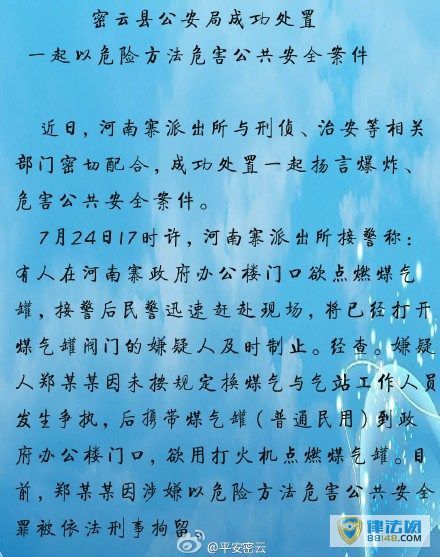 密云县公安局成功处置
一起以危险方法危害公共安全案件
近日,河南寨派出所与刑侦、治安等相关
部门密切配合,成功处置一起扬言爆炸、
危害公共安全案件。
7月24日17时许,河南寨派出所接警称:
有人在河南寨政府办公楼门口欲点燃煤气
罐,接警后民警迅速赶赴现场,将已经打开
煤气罐阀门的嫌疑人及时制止。经查。嫌疑
人郑某某因未按规定换煤气与气站工作人员
发生争执,后携带煤气罐(普通民用)到政
府办公楼门口,欲用打火机点燃煤气罐。目
前,郑某某因涉嫌以危险方法危害公共安全
罪被依法刑事拘留。
@平安密云
律法网
88148.com